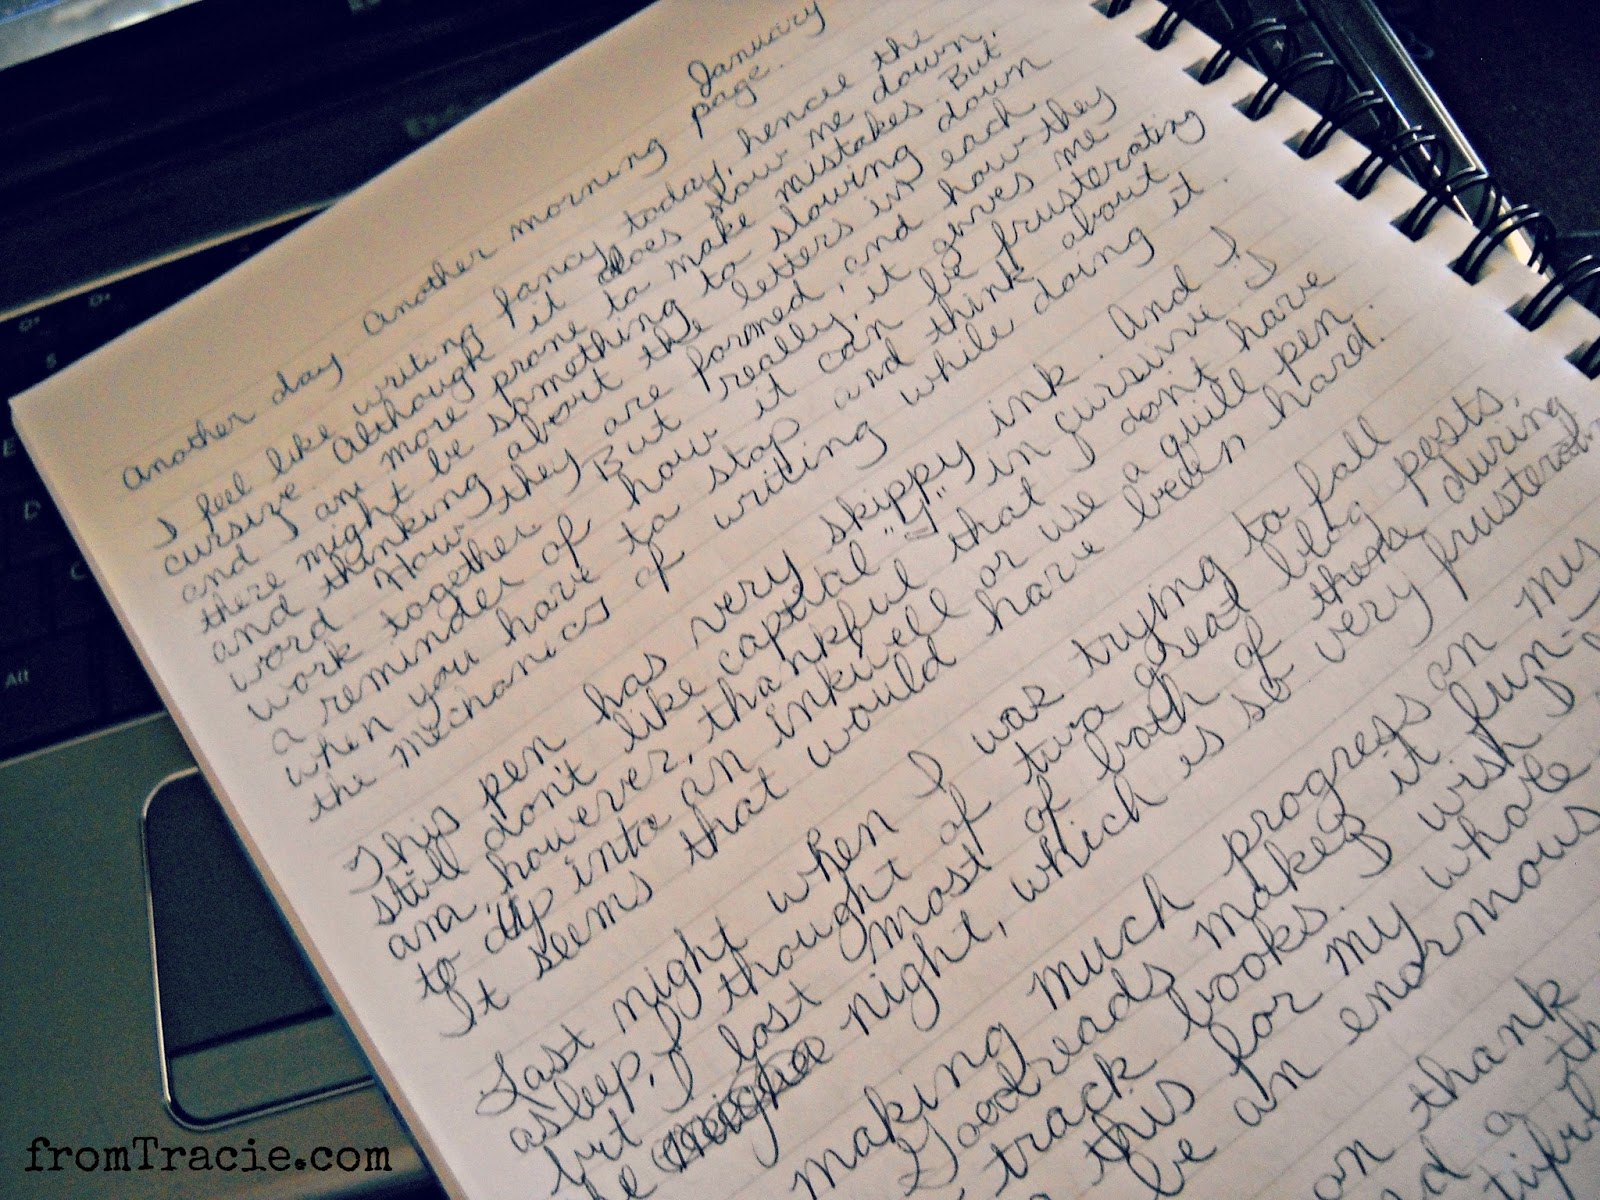 January
Another day Another morning page.
I feel like writing fancy today, hence the
cursize. Although it does slow me down,
and I am more prone to make mistakes. But
there might be something to slowing down
and thinking about the letters in each
word. How they are formed, and how they
work together. But really, it gives me
a reminder of how it can be frusterating
when you have to stop and think about
the mechanics of writing while doing it.
This pen has very skippy ink. And I
still don't like captial "I" in cursive. I
am, however, thankful that I don't have
to dip into an inkwell or use a quill pen.
It seems that would have been hard.
Last night when I was trying to fall
asleep, I thought of two great blog posts,
but I lost most of both of them during
night, which is so very frusterating
making much progress on my
Goodreads makes it fun
track books. I wish I
this for my whole
be an enormous
on thank
a
fromTracie.com